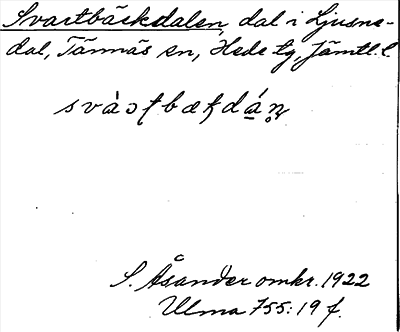 Svartbäckdalen, dal i Ljusne-
dal, Tännäs sn, Hede tg, Jämtl. l.
S. Åsander omkr. 1922
Ulma 755:19 f.